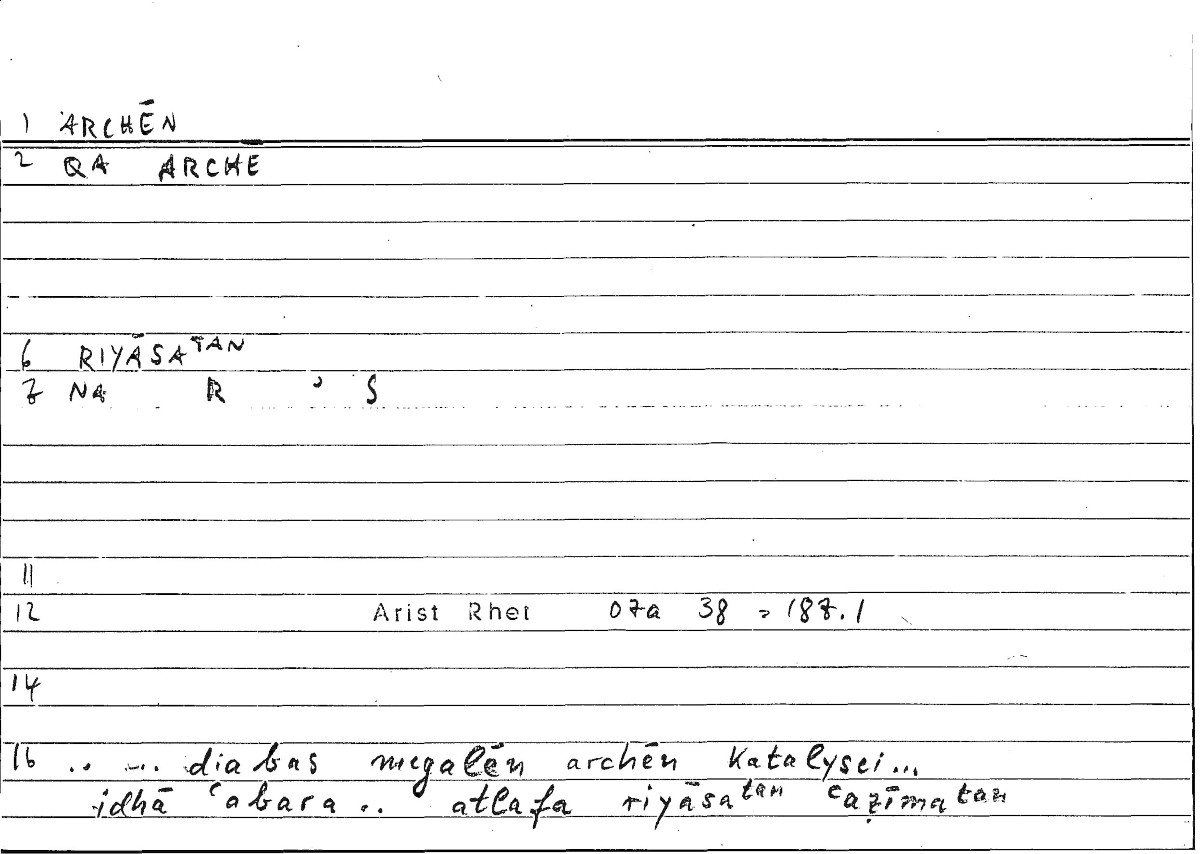 1 ARCHĒN
2 QA ARCHĒ
6 RIYĀSATAN
7 NA R ʾ S
11
12 Arist Rhet 07a 38 = 187.1
14
16 .. ... diabas megalēn archēn katalysei...
idhā ʿabara .. atlafa riyāsatan ʿaẓīmatan